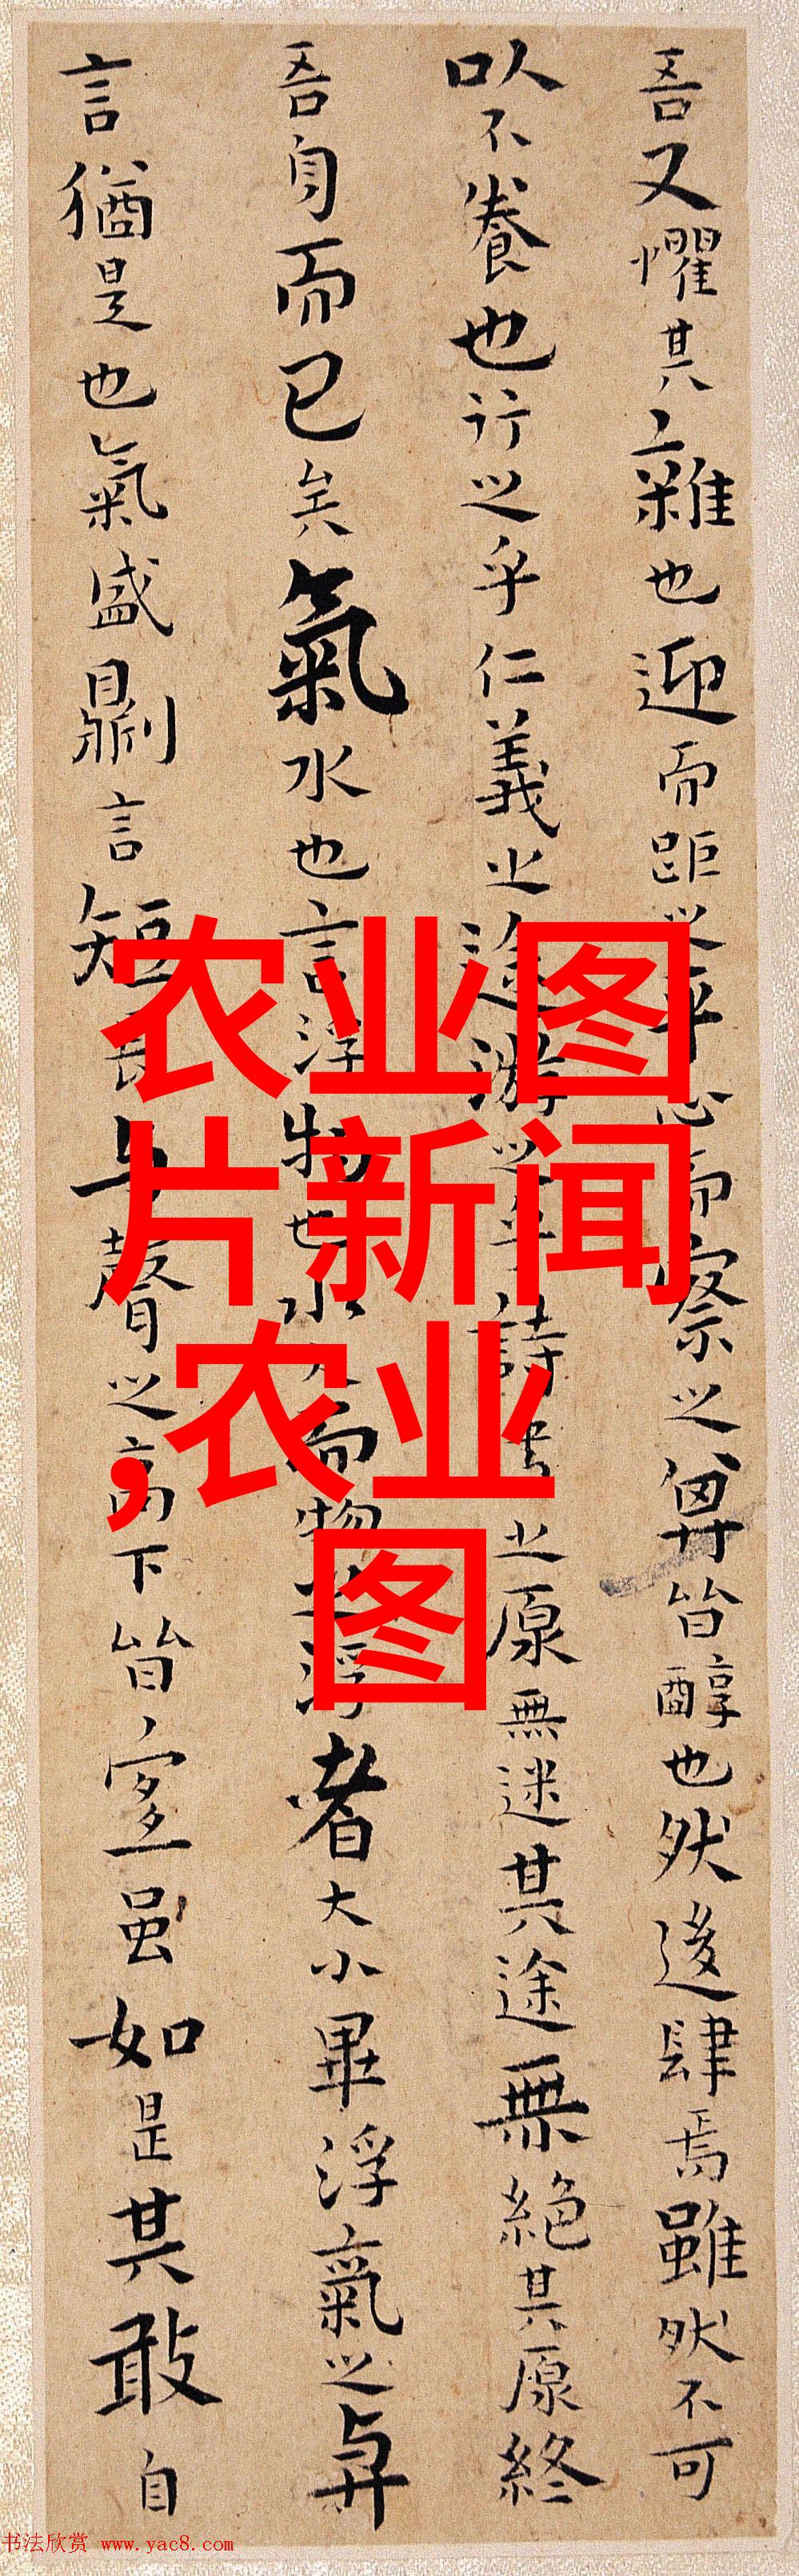 吾又懼其雜也迎而距之平心而察之其皆醇也然後肆焉雖然不可
以不養也行之乎仁義之途游之乎詩书之原無迷其途無絕其原終
吾身而已矣氣水也言浮物也水大而物之浮者大小畢浮氣之與
言猶是也氣盛則言短長与聲之高下皆宜虽如是其敢自
农业图
片新闻
,农业
图
书法欣赏 www.yac8.com